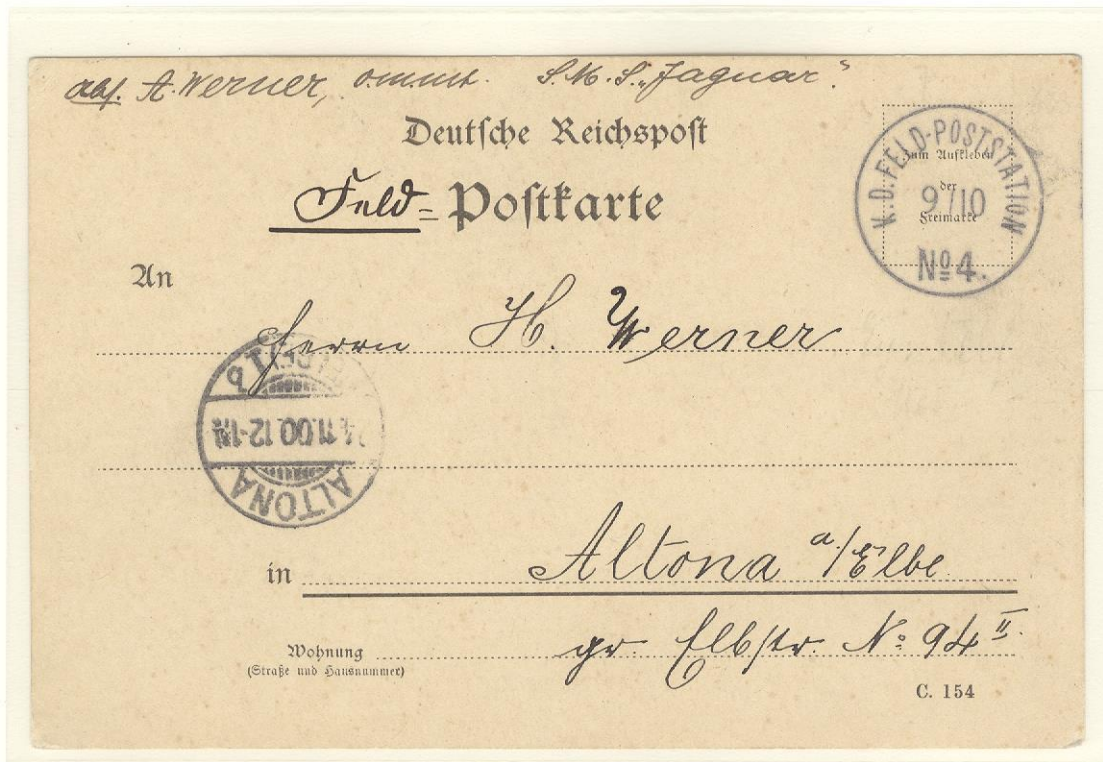 abs. A. Werner, S. M. S. „Jaguar“
Deutsche Reichspost
Feld-Postkarte
K. D. FELD-POSTSTATION
9/10
No 4.
Zum Aufkleben
der
Freimarke
An
Herrn H. Werner
ALTONA
11.00.12-1N
in Altona a/Elbe
Wohnung gr. Elbstr. No: 94 II.
(Straße und Hausnummer)
C. 154